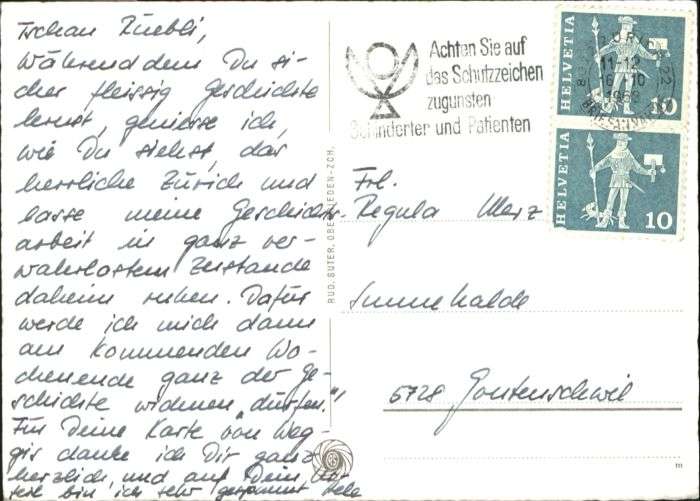 Tschau Rüebli,
Währenddem Du si-
cher fleissig Geschichte
lernst, geniesse ich,
wie Du siehst, das
herrliche Zürich und
lasse meine Geschichts-
arbeit in ganz ver-
wahrlostem Zustande
daheim ruhen. Dafür
werde ich mich dann
am kommenden Wo-
chenende ganz der Ge-
schichte widmen „dürfen"!
Für Deine Karte von Weg-
gis danke ich Dir ganz
herzlich, und auf Dein
bin ich sehr gespannt
Achten Sie auf
das Schutzzeichen
zugunsten
Behinderter und Patienten
HELVETIA
10
HELVETIA
10
11-12
RUD. SUTER, OBERRIEDEN-ZCH.
Frl.
Regula Merz
Sunnehalde
5728 Gontenschwil